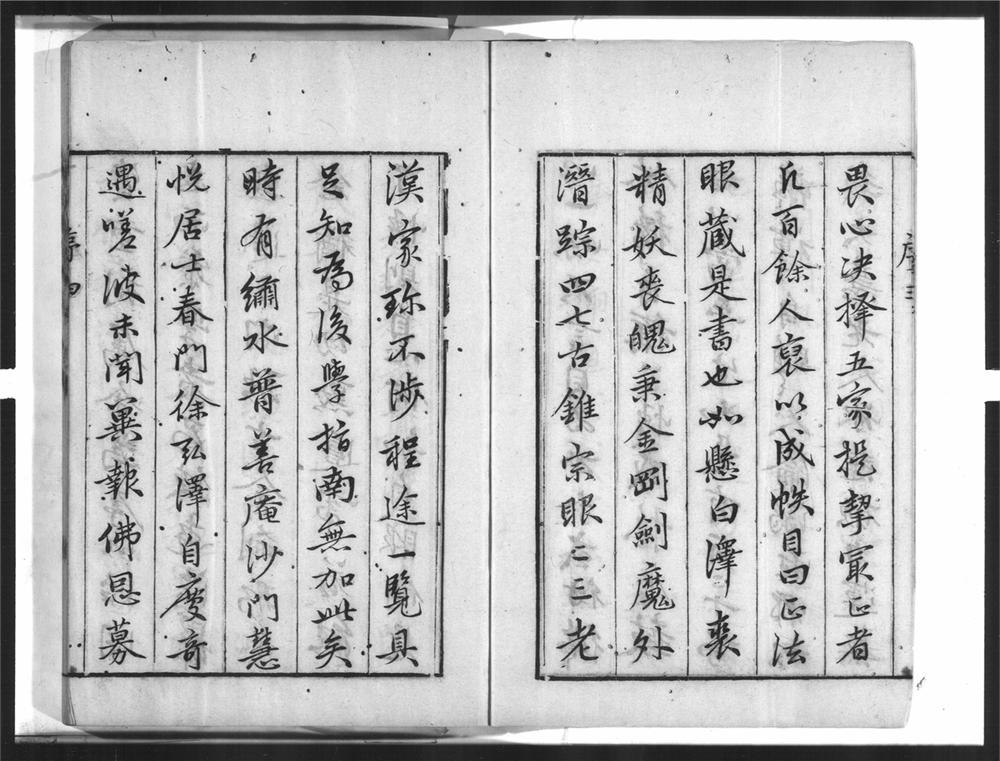 序 三
畏心决择五家提挈最正者
凡百餘人裒以成帙目曰正法
眼蔵是書也如懸白澤裘
精妖喪魄秉金剛劍魔外
潛踪四七古錐宗眼二三老
漢家珎不涉程途一覽具
足知為後學指南無加此矣
時有繡水普善庵沙門慧
悅居士春門徐弘澤自慶奇
遇嗟彼未聞冀報佛恩募
序 四